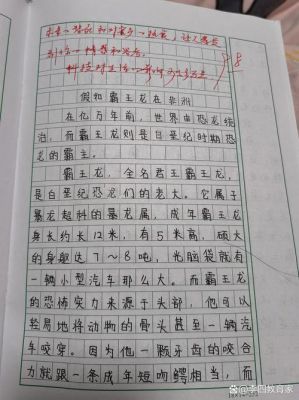 假如霸王龙在非洲
在亿万年前，世界由恐龙统
治，而霸王龙则是白垩纪时期恐
龙的霸主。
霸王龙，全名君王霸王龙，
是白垩纪恐龙们的老大。它属于
暴龙超科的暴龙属，成年霸王龙
身长约长12米，有5米高，硕大
的身躯达7～8吨，光脑袋就有
一辆小型汽车那么大。而霸王龙
的恐怖实力来源于头部，他可以
轻易地将动物的骨头甚至一辆汽
车咬穿。因为他一颗牙齿的咬合
力就跟一条成年短吻鳄相当，而